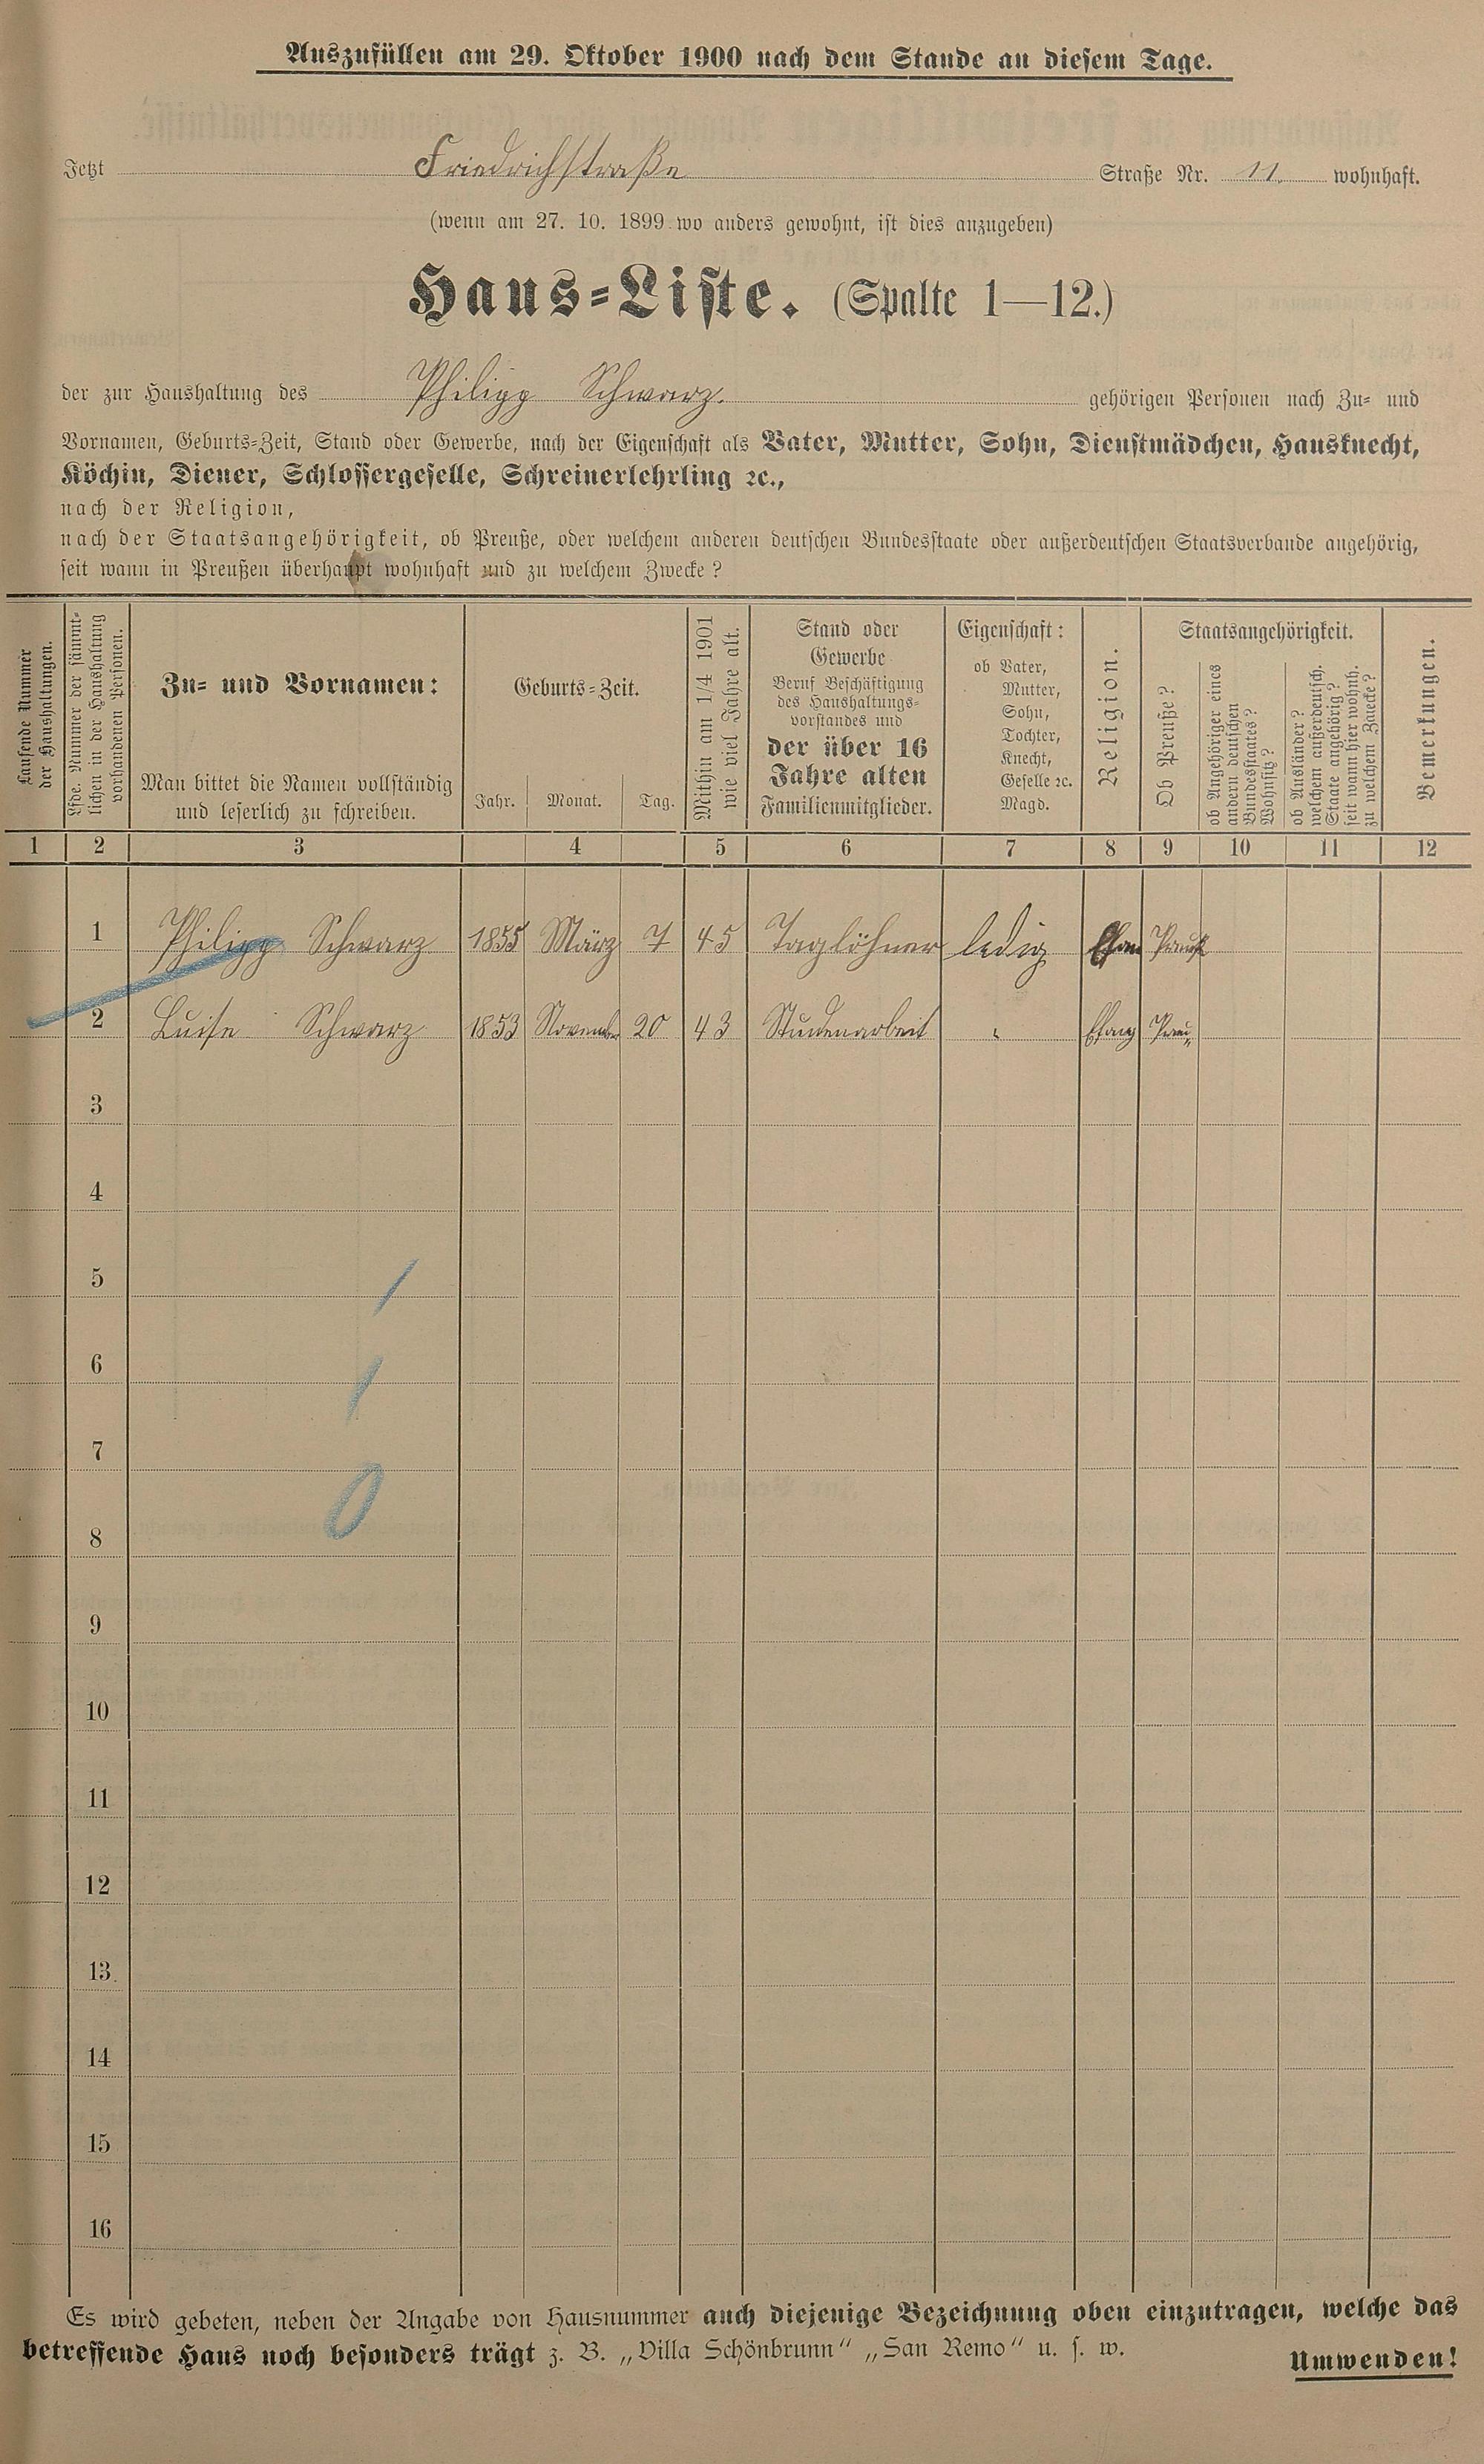 Auszufüllen am 29. Oktober 1900 nach dem Stande an diesem Tage.
Jetzt Friedrichstraße Straße Nr. 11. wohnhaft.
(wenn am 27. 10. 1899 wo anders gewohnt, ist dies anzugeben)
Haus-Liste. (Spalte 1—12.)
der zur Haushaltung des Philipp Schwarz. gehörigen Personen nach Zu- und
Vornamen, Geburts-Zeit, Stand oder Gewerbe, nach der Eigenschaft als Vater, Mutter, Sohn, Dienstmädchen, Hausknecht,
Köchin, Diener, Schlossergeselle, Schreinerlehrling ꝛc.,
nach der Religion,
nach der Staatsangehörigkeit, ob Preuße, oder welchem anderen deutschen Bundesstaate oder außerdeutschen Staatsverbande angehörig,
seit wann in Preußen überhaupt wohnhaft und zu welchem Zwecke?
Laufende Nummer
der Haushaltungen.
Lfde. Nummer der sämmt-
lichen in der Haushaltung
vorhandenen Personen.
Zu- und Vornamen:
Man bittet die Namen vollständig
und leserlich zu schreiben.
Geburts-Zeit.
Jahr. Monat. Tag.
Mithin am 1/4 1901
wie viel Jahre alt.
Stand oder
Gewerbe
Beruf Beschäftigung
des Haushaltungs-
vorstandes und
der über 16
Jahre alten
Familienmitglieder.
Eigenschaft:
ob Vater,
Mutter,
Sohn,
Tochter,
Knecht,
Geselle ꝛc.
Magd.
Religion.
Staatsangehörigkeit.
Ob Preuße?
ob Angehöriger eines
andern deutschen
Bundesstaates?
Wohnsitz?
ob Ausländer?
welchem außerdeutsch.
Staate angehörig?
seit wann hier wohnh.
zu welchem Zwecke?
Bemerkungen.
1 2 3 4 5 6 7 8 9 10 11 12
1 Philipp Schwarz 1855 März 7 45 Taglöhner ledig
2 Luise Schwarz 1853 November 20 43 " Evang
3
4
5
6
7
8
9
10
11
12
13.
14
15
16
Es wird gebeten, neben der Angabe von Hausnummer auch diejenige Bezeichnung oben einzutragen, welche das
betreffende Haus noch besonders trägt z. B. „Villa Schönbrunn" „San Remo" u. s. w.
Umwenden!